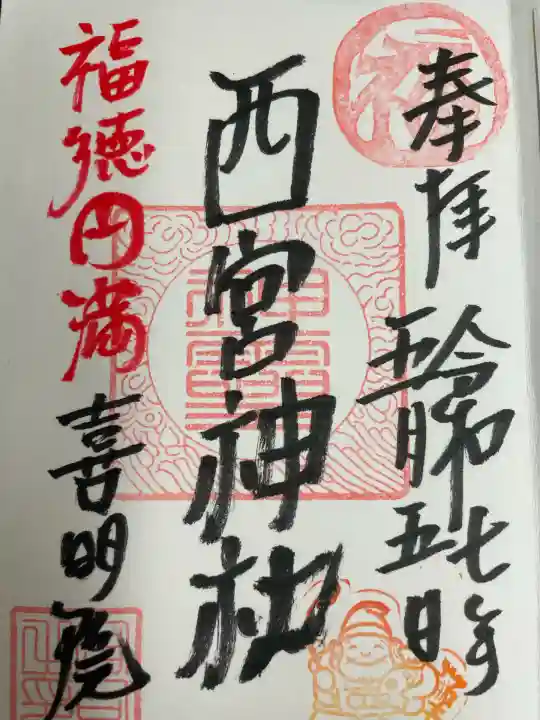 奉拝
令和七年
五月五日
西宮神社
福徳円満
喜明院
福